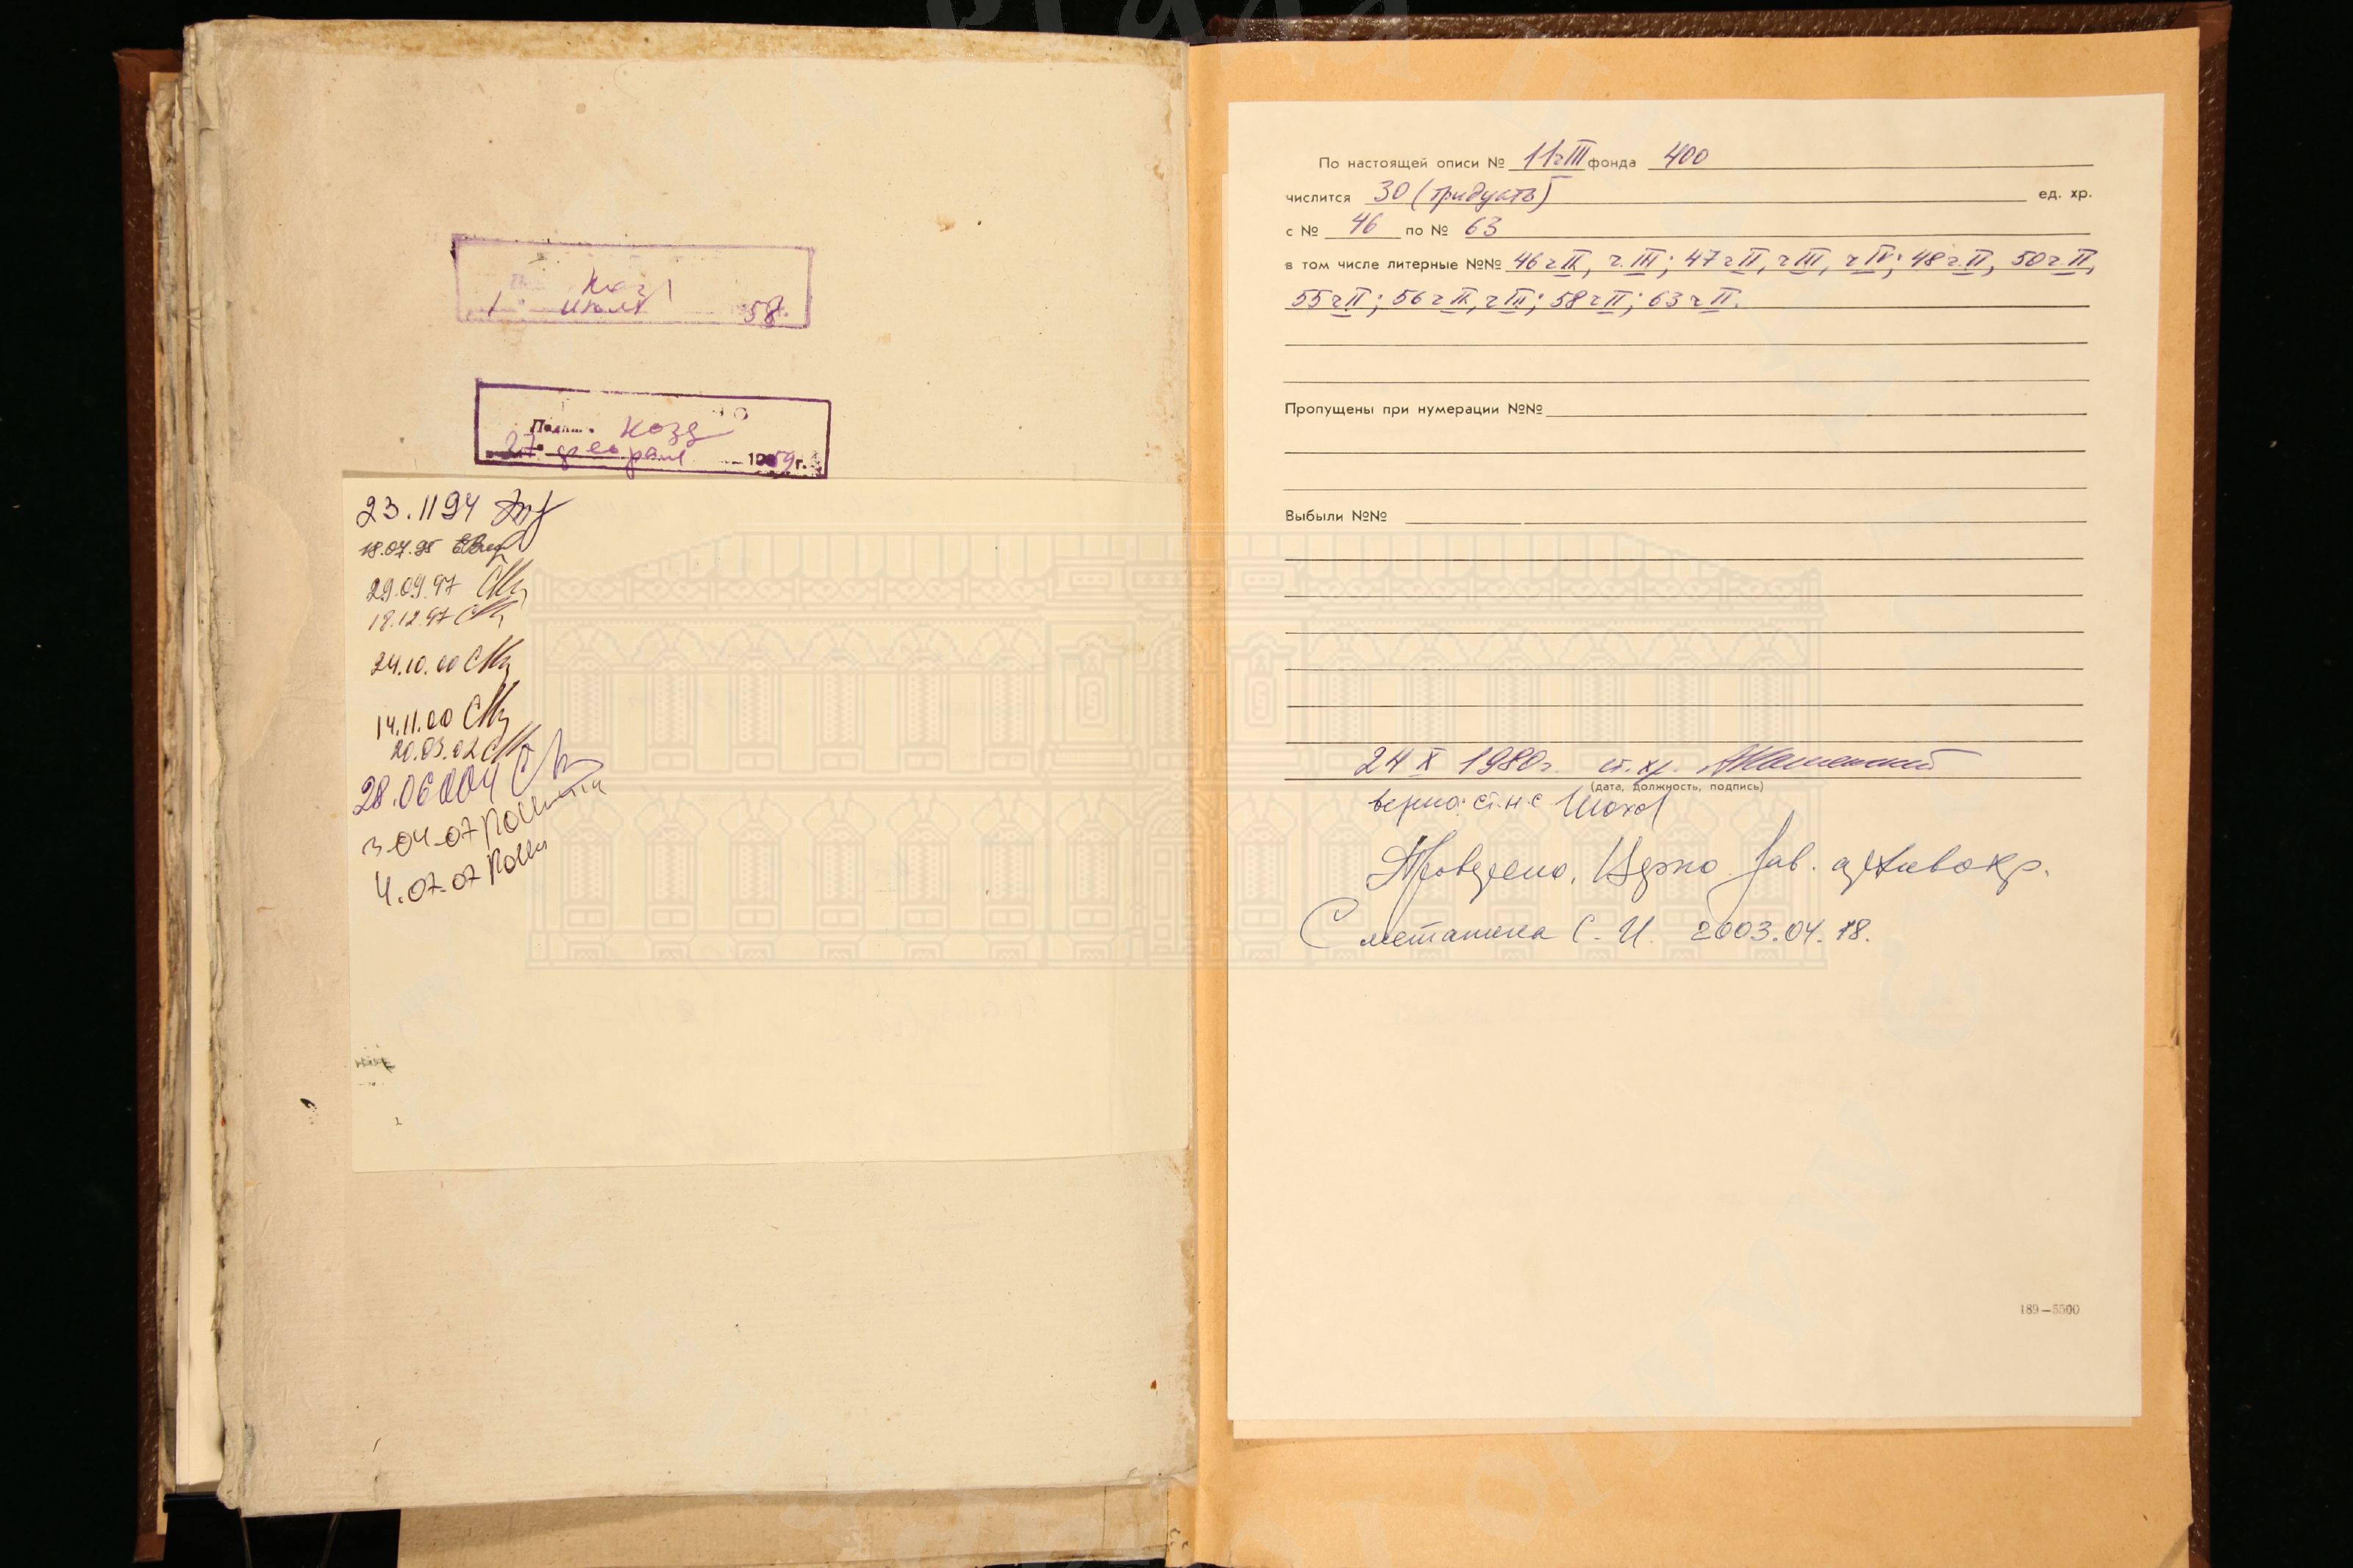 1 июля 58.
Козл
27 февраля 1959г.
23.11 94
18.07.95
29.09.97
18.12.97
24.10.00
14.11.00
20.03.02
28.06.004
3.04.07
4.07.07
По настоящей описи № 11 ч III фонда 400
числится 30 (тридцать) ед. хр.
с № 46 по № 63
в том числе литерные №№ 46 ч II, ч. III; 47 ч II, ч III, ч IV; 48 ч II, 50 ч. II,
55 ч II; 56 ч II, ч III; 58 ч II; 63 ч II.
Пропущены при нумерации №№
Выбыли №№
24 X 1980г. ст. хр.
(дата, должность, подпись)
верно: ст. н. с
Проверено. Верно Зав. архивохр.
Сметанина С. И. 2003.04.18.
189—5500